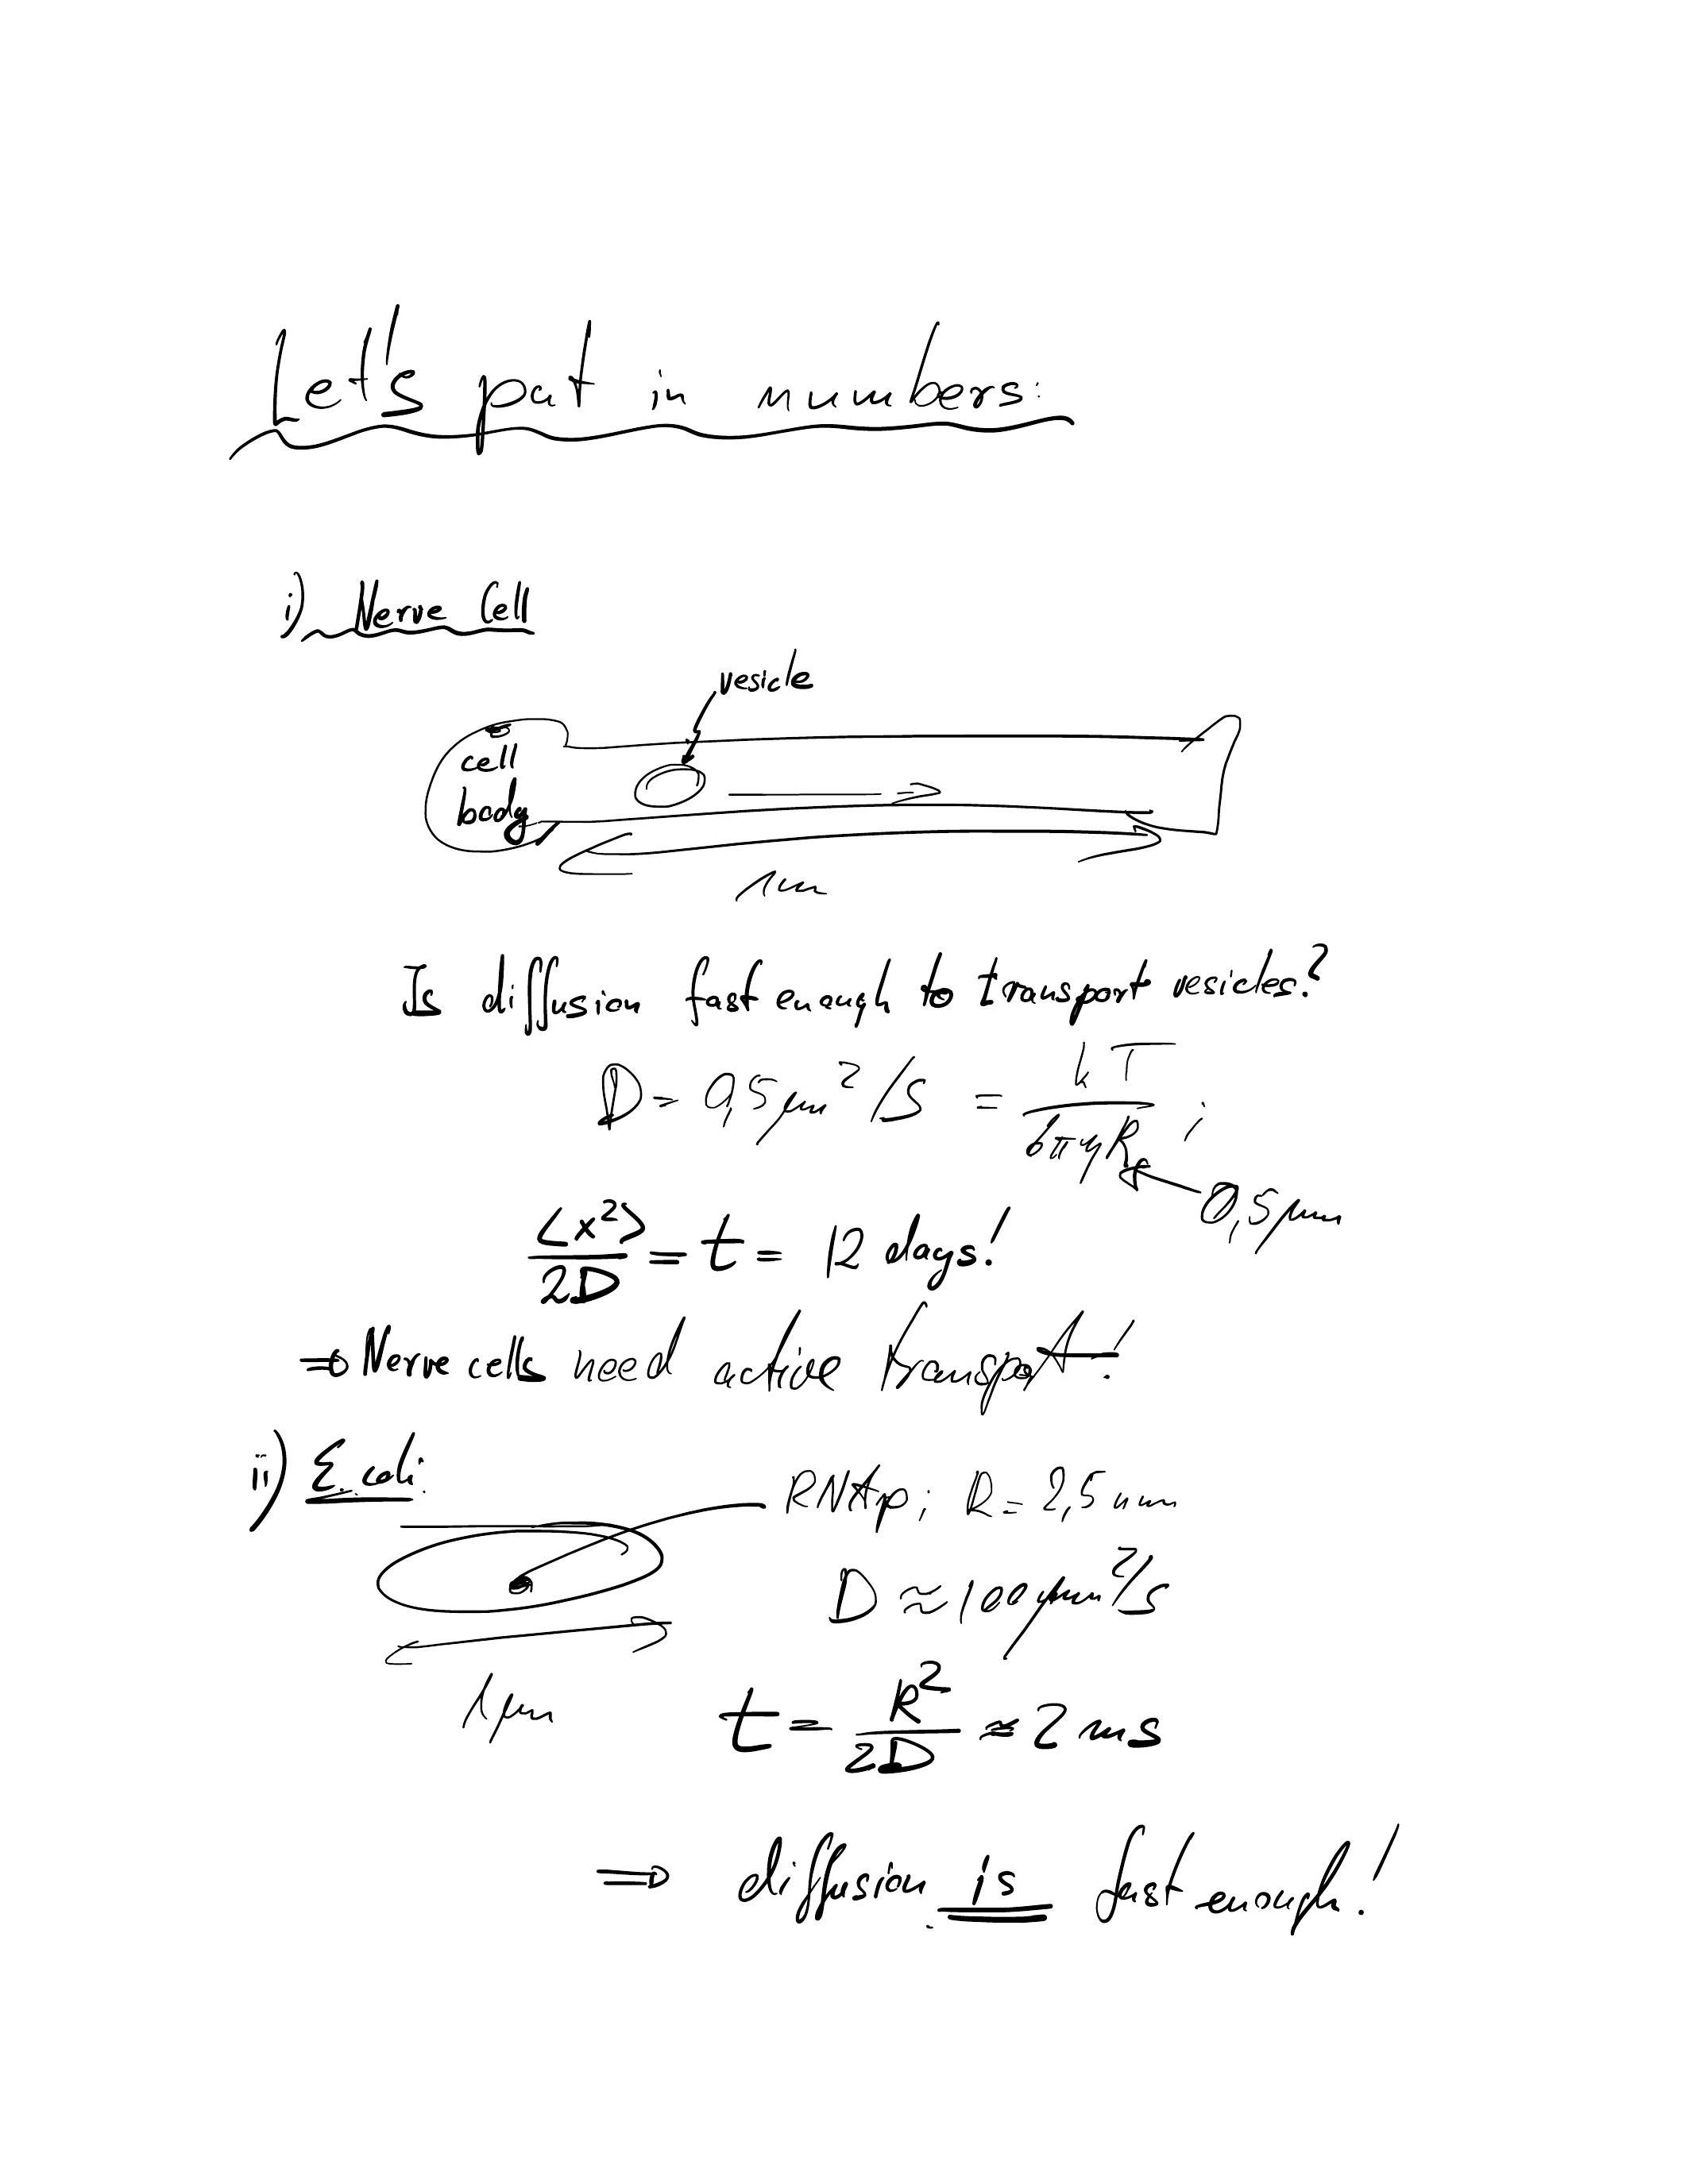 Let's put in numbers:
i) Nerve Cell
vesicle
cell
body
1mm
Is diffusion fast enough to transport vesicles?
D = 0,5 µm²/s = kT / 6πηR ;
0,5 µm
<x²> / 2D = t = 12 days!
⇒ Nerve cells need active transport!
ii) E. coli:
RNAp; R = 2,5 nm
D ≈ 100 µm²/s
1µm
t = R² / 2D ≈ 2 ms
⇒ diffusion is fast enough!